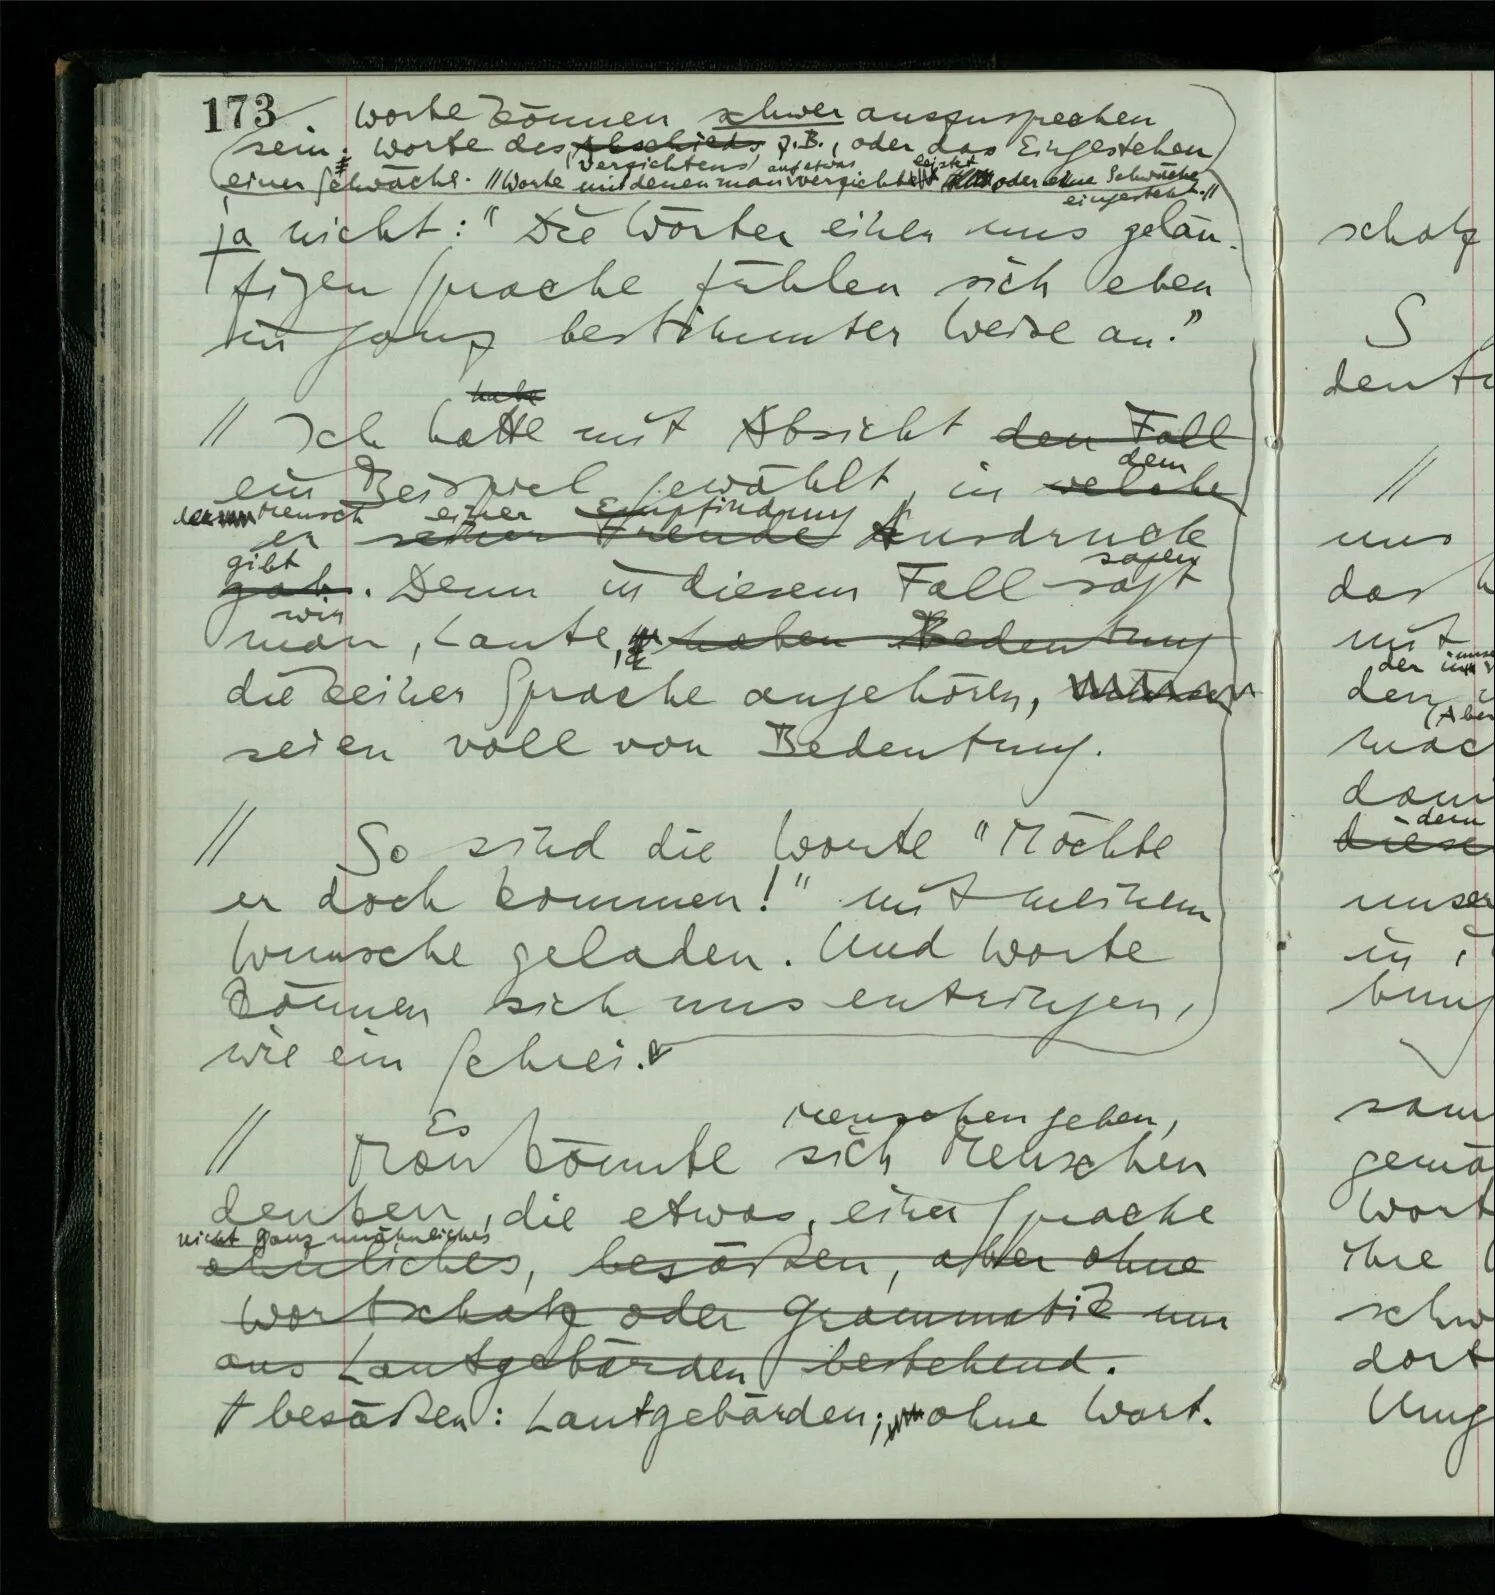 173 Worte können schwer auszusprechen
sein: Worte des Abschieds z.B., oder das Eingestehen
Verzichtens auf etwas leistet
einer Schwäche. // Worte mit denen man verzichtet oder eine Schwäche
eingesteht. //
ja nicht: "Die Wörter einer uns geläu-
figen Sprache fühlen sich eben
in ganz bestimmter Weise an."
habe
// Ich hatte mit Absicht den Fall
dem
ein Beispiel gewählt, in welche
der Mensch einer Empfindung
er seiner Freude Ausdruck
gibt sagen
gab. Denn in diesem Fall sagt
wir
man, Laute, haben Bedeutung
die keiner Sprache angehören,
seien voll von Bedeutung.
// So sind die Worte "Möchte
er doch kommen!" mit meinem
Wunsche geladen. Und Worte
können sich uns entringen,
wie ein Schrei.
Es Menschen geben,
// Man könnte sich Menschen
denken, die etwas, einer Sprache
nicht ganz unähnliches,
ähnliches, besäßen, aber ohne
Wortschatz oder Grammatik nur
aus Lautgebärden bestehend.
besäßen: Lautgebärden; ohne Wort-
schatz
S
uns
das
mit
der
den
(Aber
mac
dem
diese
unser
in
bung
sam
gemä
Wort
ihre
schw
dort
Umg